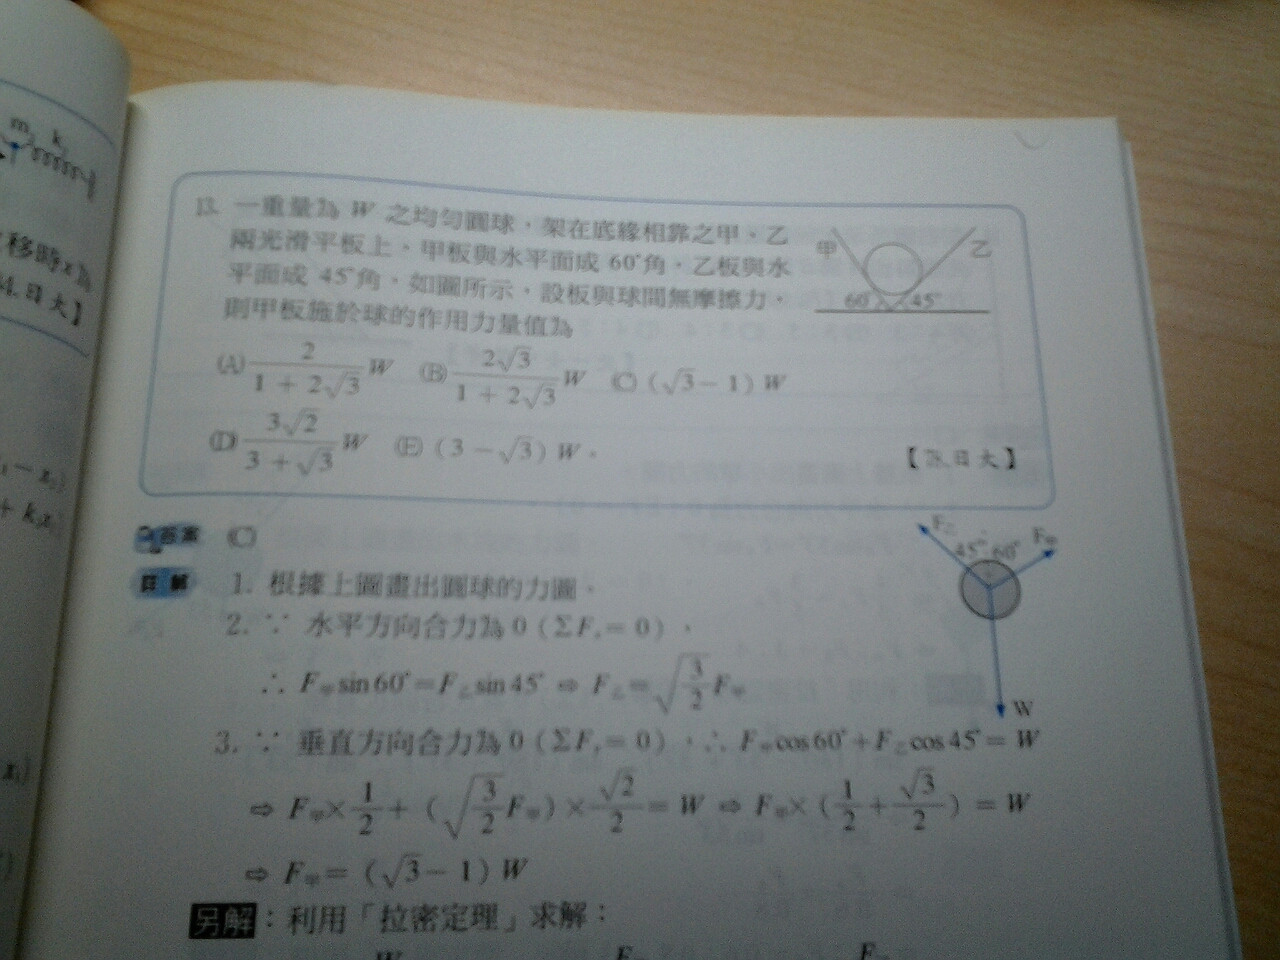 m k
移時x為
84.日大】
13. 一重量為 W 之均勻圓球，架在底緣相靠之甲、乙
兩光滑平板上，甲板與水平面成 60°角，乙板與水
平面成 45°角，如圖所示，設板與球間無摩擦力，
則甲板施於球的作用力量值為
甲 乙
60° 45°
(A) 2/(1 + 2√3) W (B) 2√3/(1 + 2√3) W (C) (√3 − 1) W
(D) 3√2/(3 + √3) W (E) (3 − √3) W。
【78.日大】
答案 (C)
詳解 1. 根據上圖畫出圓球的力圖。
F乙 45° 60° F甲
W
2. ∵ 水平方向合力為 0 (ΣFx = 0)，
∴ F甲 sin 60° = F乙 sin 45° ⇨ F乙 = √(3/2) F甲
3. ∵ 垂直方向合力為 0 (ΣFy = 0)，∴ F甲 cos 60° + F乙 cos 45° = W
⇨ F甲 × 1/2 + (√(3/2) F甲) × √2/2 = W ⇨ F甲 × (1/2 + √3/2) = W
⇨ F甲 = (√3 − 1) W
另解：利用「拉密定理」求解：